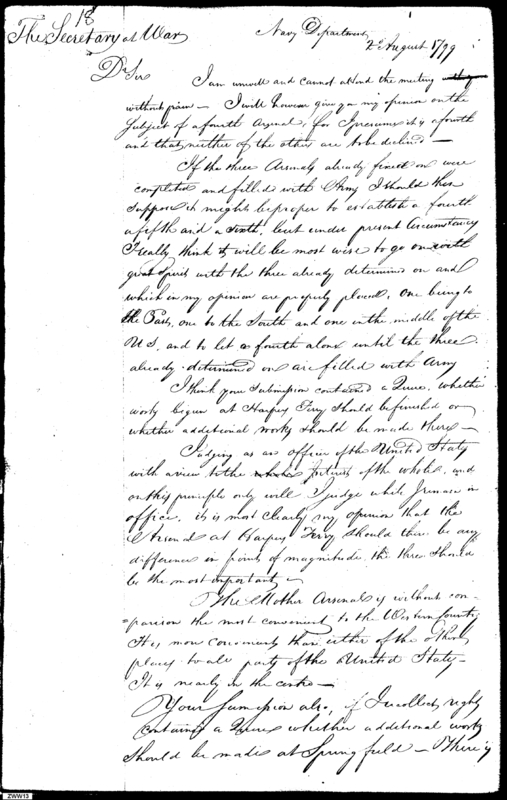 18
The Secretary at War
Navy Department
2d August 1799
Dr Sir
I am unwell and cannot attend the meeting
without pain — I will however give you my opinion on the
subject of a fourth Arsenal, for I presume it is a fourth
and that neither of the other are to be declined —
If the three Arsenals already fixed on were
completed and filled with Arms I should then
suppose it might be proper to establish a fourth
a fifth and a sixth, but under present Circumstances
I really think it will be most wise to go on with
great spirit with the three already determined on and
which in my opinion are properly placed, One being to
the East, one to the South and one in the middle of the
U S. and to let a fourth alone until the three
already determined on are filled with Arms
I think your submission contained a Quere, whether
works begun at Harpers Ferry should be finished or
whether additional works should be made there —
Judging as an officer of the United States
with a view to the Interests of the whole, and
on this principle only will I judge while I remain in
office, it is most clearly my opinion that the
Arsenal at Harpers Ferry should there be any
difference in points of magnitude, the three should
be the most important —
The Mother Arsenal is without com-
parison the most convenient to the Western Country
It is more convenient than either of the other
places to all parts of the United States —
It is nearly in the centre —
Your submission also, if I recollect right
contained a Quere whether additional works
should be made at Springfield — There is
ZWW13